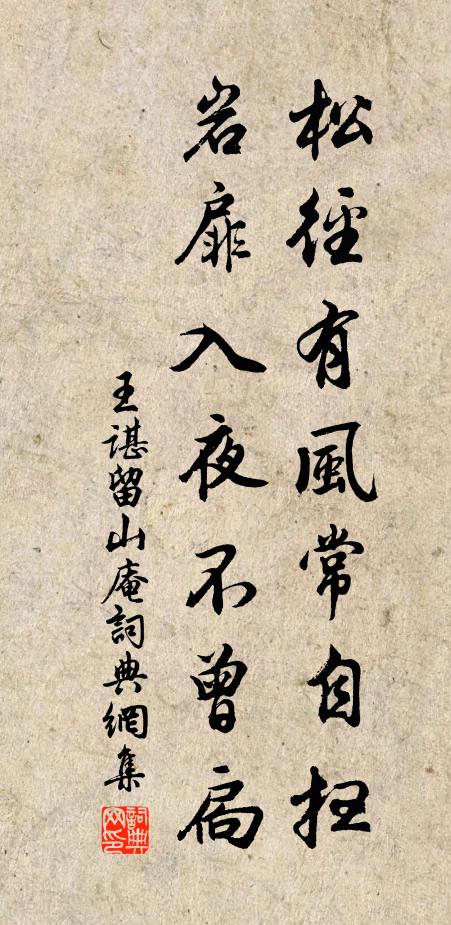 松徑有風常自扫
岩扉入夜不曾扃
王諶留山庵詞典網集
詞典
网印